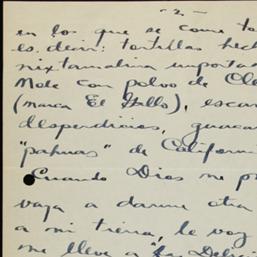 - 2 -
en los que se come to
es decir: tortillas hech
nixtamalina importad
Mole con polvo de Ole
(marca El Gallo), escam
desperdicios, guacam
"pahuas" de Californi
Cuando Dios me p
vaya a darme otra
a mi tierra, le voy
me lleve a "Las Delic